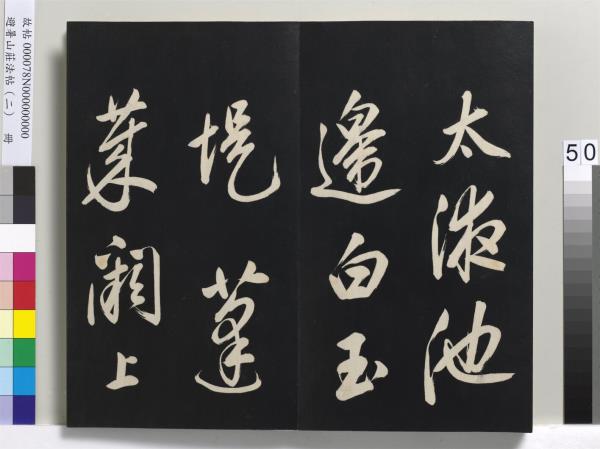 太液池
邊白玉
堤 蓬
萊閣上
故帖 000078N000000000
避暑山莊法帖（二） 冊
50